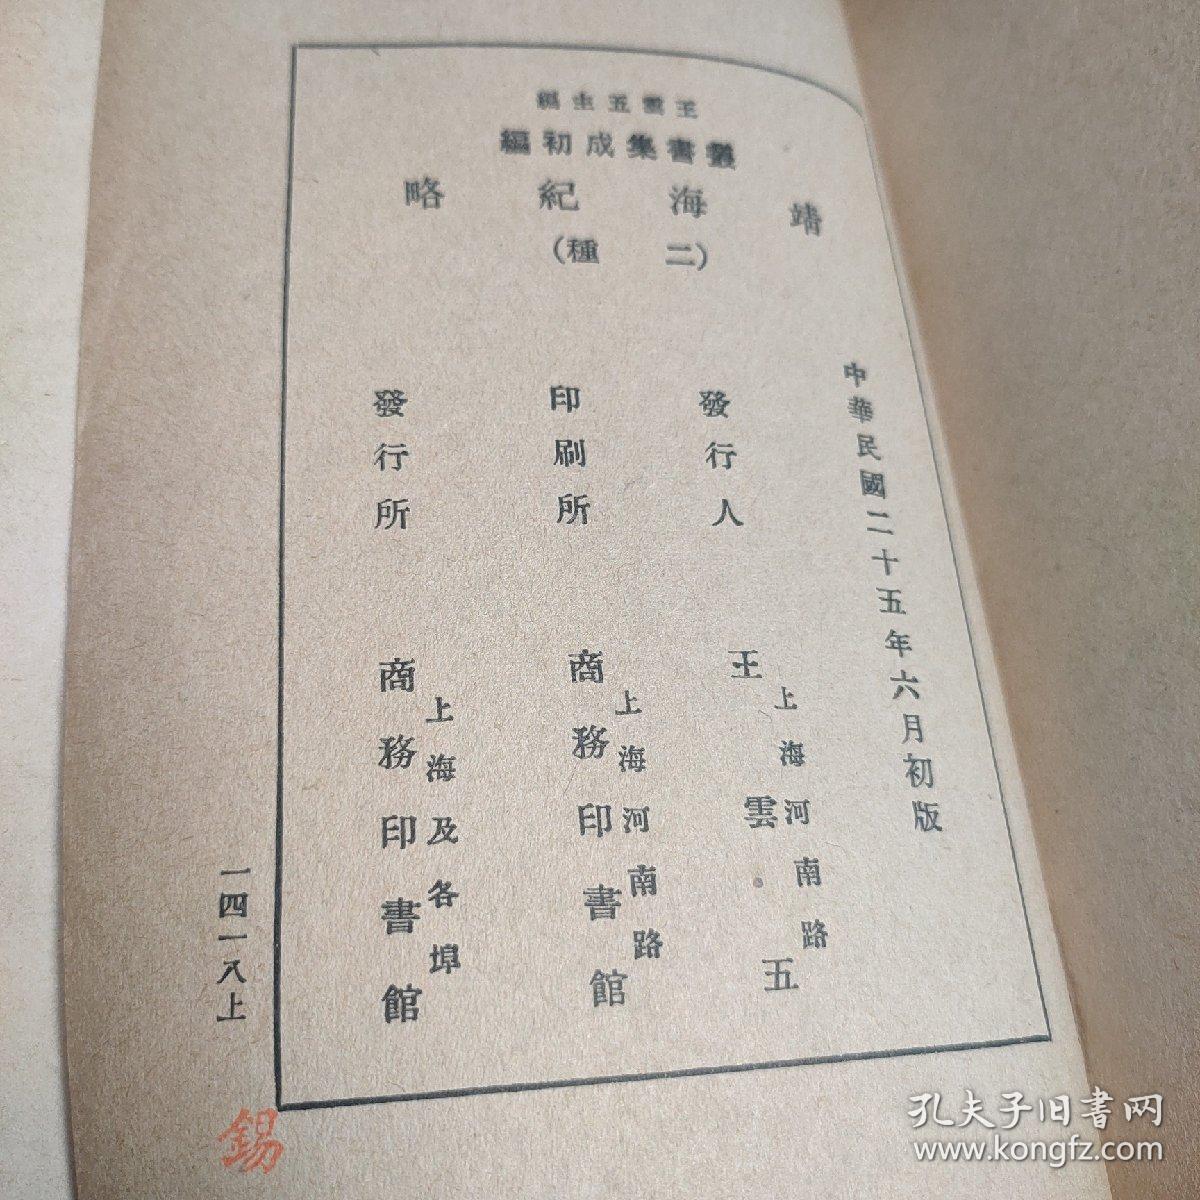 王雲五主編
叢書集成初編
靖海紀略
(二種)
中華民國二十五年六月初版
發行人
上海河南路
王雲五
印刷所
上海河南路
商務印書館
發行所
上海及各埠
商務印書館
一四一八上
錫
孔夫子旧书网
www.kongfz.com